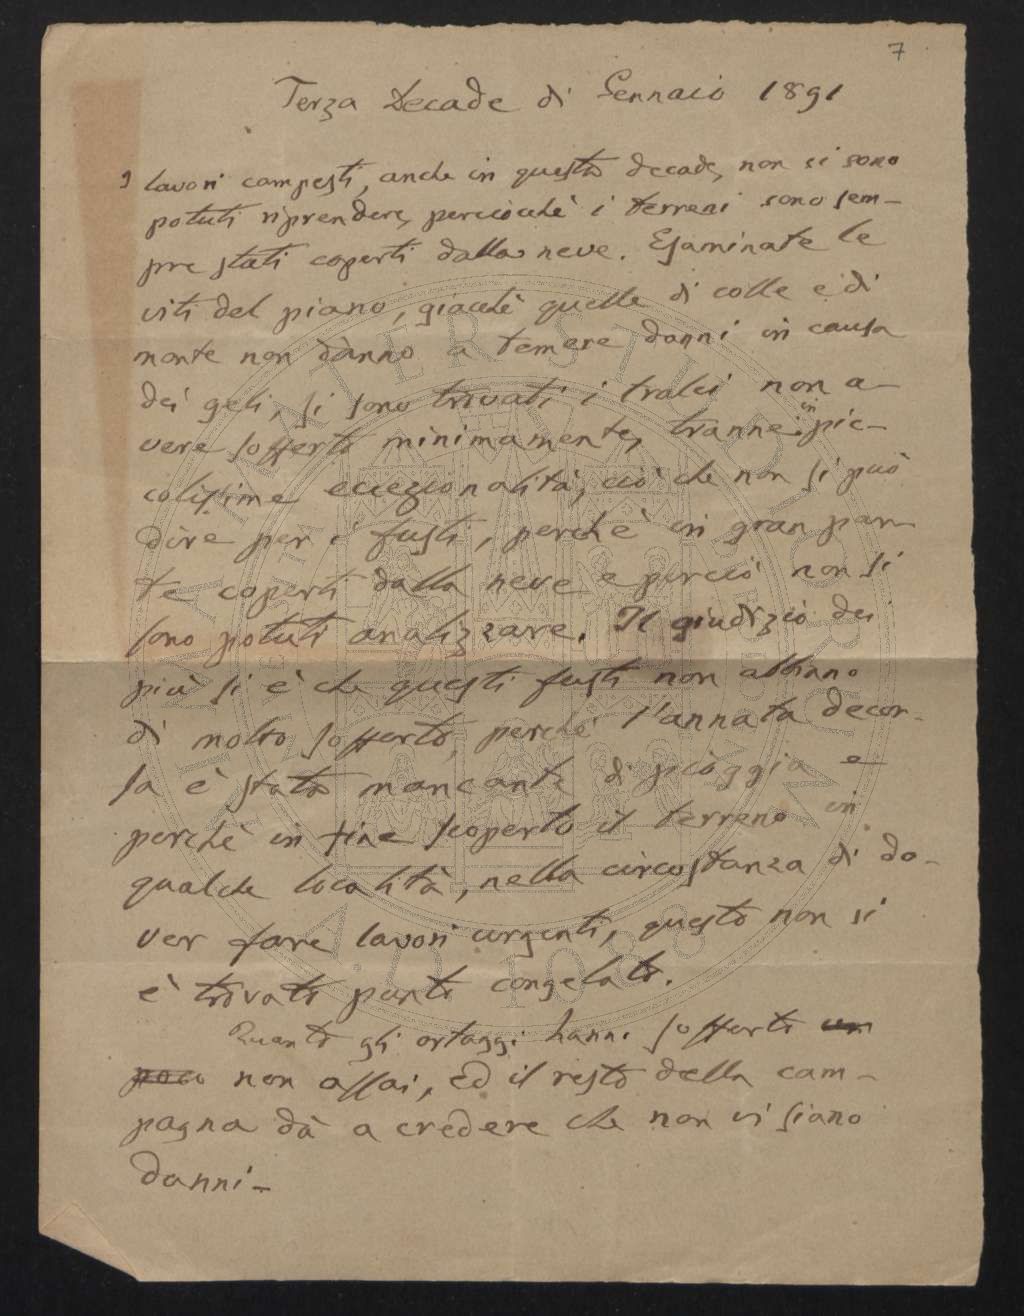 7
Terza Decade di Gennaio 1891
I lavori campesti, anche in questa decade, non si sono
potuti riprendere, perciocchè i terreni sono sem-
pre stati coperti dalla neve. Esaminate le
viti del piano, giacchè quelle di colle e di
monte non dànno a temere danni in causa
dei geli, si sono trovati i tralci non a-
vere sofferto minimamente, tranne in pic-
colissime eccezionalità, ciò che non si può
dire per i fusti, perchè in gran par-
te coperti dalla neve e perciò non si
sono potuti analizzare. Il giudizio dei
più si è che questi fusti non abbiano
di molto sofferto, perchè l'annata decor-
sa è stata mancante di pioggia e
perchè in fine scoperto il terreno in
qualche località, nella circostanza di do-
ver fare lavori urgenti, questo non si
è trovato punto congelato.
Quanto gli ortaggi hanno sofferto un
poco non assai, ed il resto della cam-
pagna dà a credere che non vi siano
danni-
ALMA MATER STUDIORUM
A.D. 1088